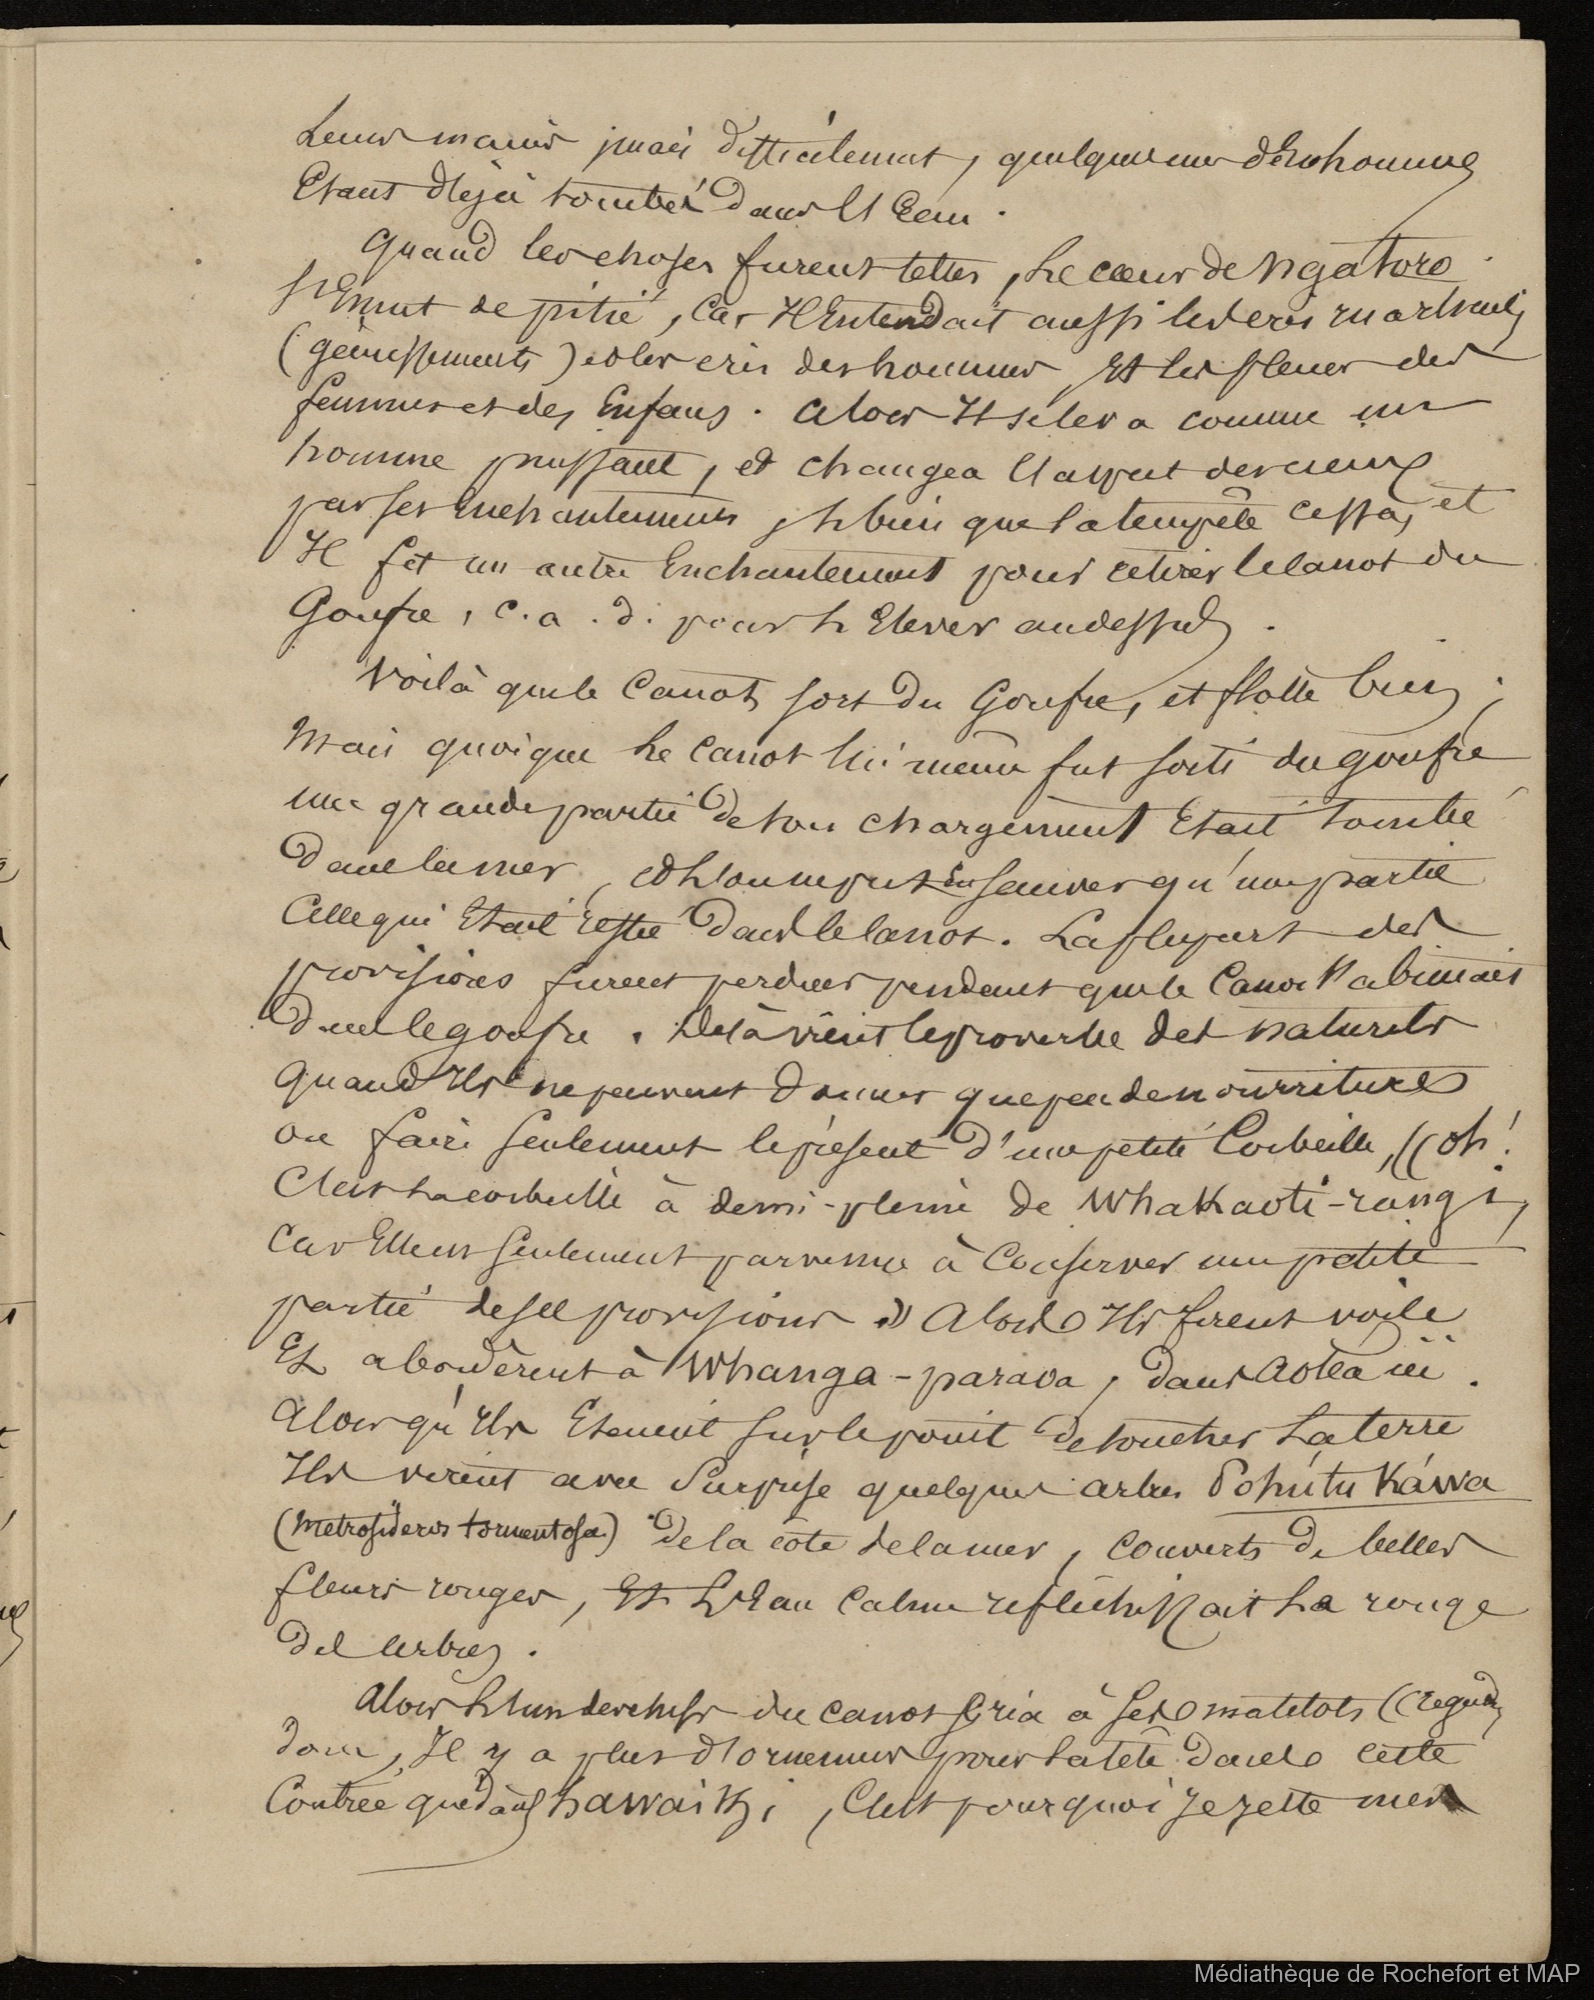 Leurs mains mais difficilement, quelques uns des hommes
Etant déjà tombés dans l'Eau.
Quand les choses furent telles, le cœur de ngatoro
s'Emut de pitié, Car Il Entendait aussi les cris
(gémissements) et les cris des hommes Et les pleurs des
femmes et des Enfans. alors Il se leva comme un
homme puissant, et changea l'aspect des cieux
par ses Enchantemens, si bien que la tempête cessa, et
Il fit un autre Enchantement pour retirer le canot du
Goufre, c. a. d. pour l'Elever au dessus.
Voilà que le Canot sort du Goufre, et flotte bien;
Mais quoique le Canot lui même fut sorti du goufre
une grande partie de son chargement Etait tombé
dans la mer, et l'on ne put en sauver qu'une partie
Celle qui Etait restée dans le Canot. La plupart des
provisions furent perdues pendant que le Canot s'abimait
dans le goufre. De là vient le proverbe des naturels
Quand Ils ne peuvent donner que peu de nourriture
ou faire seulement le présent d'une petite Corbeille, ((oh!
C'est la corbeille à demi-pleine de Whakaoti-rangi,
Car Elle est seulement parvenue à Conserver une petite
partie de ses provisions )) Alors Ils firent voile
Et abordèrent à Whanga-paraoa, dans aotéa
Alors qu'Ils Etaient sur le point de toucher La terre
Ils virent avec Surprise quelques arbres Pohútu Káwa
(Metrosideros tomentosa) de la côte de la mer, couverts de belles
fleurs rouges, Et L'Eau Calme reflechissait le rouge
des arbres.
Alors l'un des chefs du canot cria à ses matelots ((regardez
donc, Il y a plus d'ornemens pour la tête dans cette
Contrée que dans hawaiki, C'est pourquoi Je jette mes